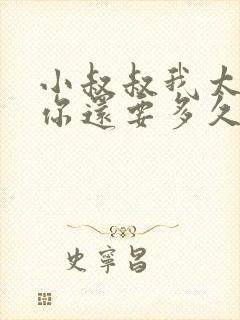 小叔叔我太
你還要多久
史寧昌